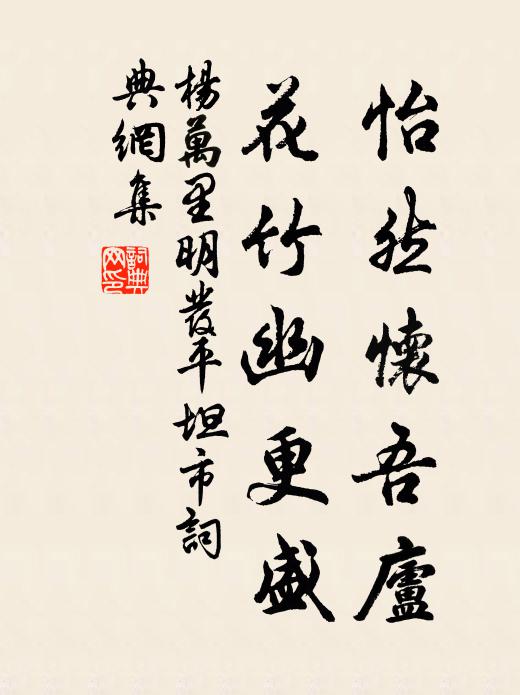 怡然懷吾廬
花竹幽更盛
楊萬里明發平坦市詞
典網集
詞典
网印